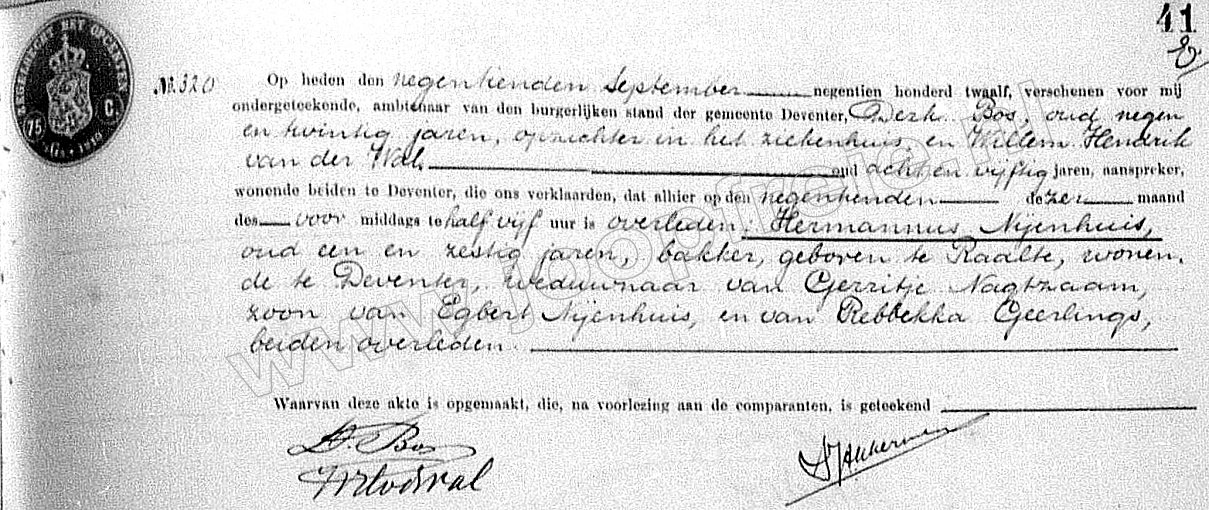 41
No. 320
Op heden den negentienden September negentien honderd twaalf, verschenen voor mij
ondergeteekende, ambtenaar van den burgerlijken stand der gemeente Deventer, Derk Bos, oud negen
en twintig jaren, opzichter in het ziekenhuis, en Willem Hendrik
van der Wal oud acht en vijftig jaren, aanspreker,
wonende beiden te Deventer, die ons verklaarden, dat alhier op den negentienden dezer maand
des voor middags te half vijf uur is overleden: Hermannus Nijenhuis,
oud een en zestig jaren, bakker, geboren te Raalte, wonen.
de te Deventer, weduwnaar van Gerritje Nagtzaam,
zoon van Egbert Nijenhuis, en van Rebbekka Geerlings,
beiden overleden.
Waarvan deze akte is opgemaakt, die, na voorlezing aan de comparanten, is geteekend
D. Bos
75 C.